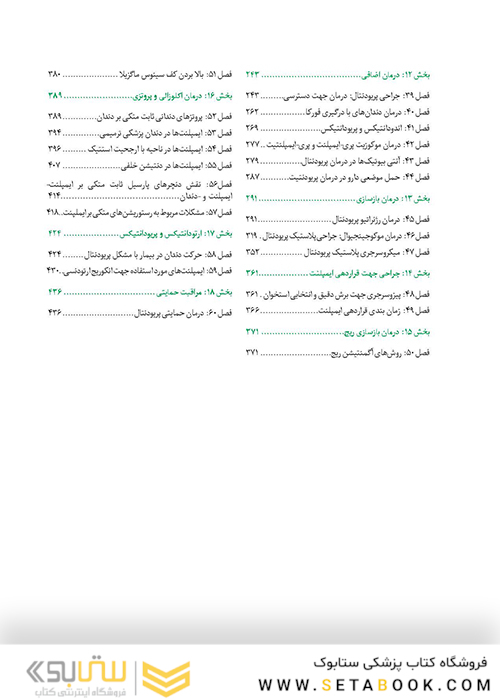 بخش ۱۲: درمان اضافی ................................... ۲۴۳
فصل ۳۹: جراحی پریودنتال: درمان جهت دسترسی......... ۲۴۳
فصل ۴۰: درمان دندان‌های با درگیری فورکا ............... ۲۶۲
فصل ۴۱: اندودانتیکس و پریودانتیکس..................... ۲۶۹
فصل ۴۲: درمان موکوزیت پری-ایمپلنت و پری-ایمپلنتیت .. ۲۷۷
فصل ۴۳: آنتی بیوتیک‌ها در درمان پریودنتال............... ۲۷۹
فصل ۴۴: حمل موضعی دارو در درمان پریودنتیت........... ۲۸۷
بخش ۱۳: درمان بازسازی................................... ۲۹۱
فصل ۴۵: درمان رژنراتیو پریودنتال..........................۲۹۱
فصل ۴۶: درمان موکوجینجیوال: جراحی پلاستیک پریودنتال . ۳۱۹
فصل ۴۷: میکروسرجری پلاستیک پریودنتال ............... ۳۵۲
بخش ۱۴: جراحی جهت قراردهی ایمپلنت .................. ۳۶۱
فصل ۴۸: پیزوسرجری جهت برش دقیق و انتخابی استخوان . ۳۶۱
فصل ۴۹: زمان بندی قراردهی ایمپلنت..................... ۳۶۶
بخش ۱۵: درمان بازسازی ریج.............................. ۳۷۱
فصل ۵۰: روش‌های آگمنتیشن ریج.......................... ۳۷۱
فصل ۵۱: بالا بردن کف سینوس ماگزیلا .................... ۳۸۰
بخش ۱۶: درمان اکلوزالی و پروتزی......................... ۳۸۹
فصل ۵۲: پروتزهای دندانی ثابت متکی بر دندان............ ۳۸۹
فصل ۵۳: ایمپلنت‌ها در دندان پزشکی ترمیمی............... ۳۹۴
فصل ۵۴: ایمپلنت‌ها در ناحیه با ارجحیت استتیک ......... ۳۹۶
فصل ۵۵: ایمپلنت‌ها در دنتیشن خلفی..................... ۴۰۷
فصل۵۶: نقش دنچرهای پارسیل ثابت متکی بر ایمپلنت-
ایمپلنت و -دندان..........................................۴۱۴
فصل ۵۷: مشکلات مربوط به رستوریشن‌های متکی بر ایمپلنت.. ۴۱۸
بخش ۱۷: ارتودانتیکس و پریودانتیکس.................... ۴۲۴
فصل ۵۸: حرکت دندان در بیمار با مشکل پریودنتال........ ۴۲۴
فصل ۵۹: ایمپلنت‌های مورد استفاده جهت انکوریج ارتودنسی.. ۴۳۰
بخش ۱۸: مراقبت حمایتی.................................. ۴۳۶
فصل ۶۰: درمان حمایتی پریودنتال......................... ۴۳۶
فروشگاه کتاب پزشکی ستابوک
WWW.SETABOOK.COM
ستابوک
فروشگاه اینترنتی کتاب